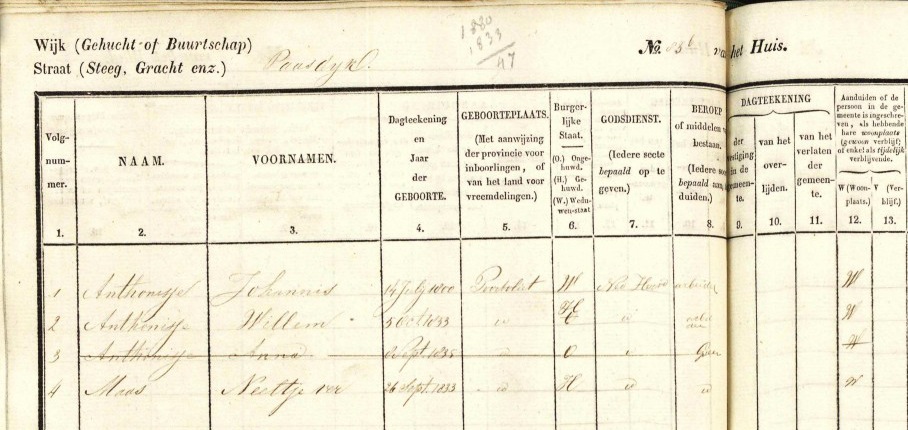 1880
1833
47
Wijk (Gehucht of Buurtschap)
Straat (Steeg, Gracht enz.) Paasdyk.
No. van het Huis.
Volg-
num-
mer.
NAAM.
VOORNAMEN.
Dagteekening
en
Jaar
der
GEBOORTE.
GEBOORTEPLAATS.
(Met aanwijzing
der provincie voor
inboorlingen, of
van het land voor
vreemdelingen.)
Burger-
lijke
Staat.
(O.) Onge-
huwd.
(H.) Ge-
huwd.
(W.) Wedu-
wen-staat
GODSDIENST.
(Iedere secte
bepaald op te
geven.)
BEROEP
of middelen v
bestaan.
(Iedere
bepaald aan
duiden.)
DAGTEEKENING
der
vestiging
in de
gemeen-
te.
van het
over-
lijden.
van het
verlaten
der
gemeen-
te.
Aanduiden of de
persoon in de ge-
meente is ingeschre-
ven, als hebbende
hare woonplaats
(gewoon verblijf)
of enkel als tijdelijk
verblijvende.
W (Woon-
plaats.)
V (Ver-
blijf.)
1. 2. 3. 4. 5. 6. 7. 8. 9. 10. 11. 12. 13.
1 Anthonisje Johannis 14 July 1800 Poortvliet W Ned Herv arbeider W
2 Anthonisje Willem 5 Oct 1833 id H id W
3 Anthonisje Anna Sept 1835 O W
4 Maas Neeltje ver 26 Sept 1833 id H id id W